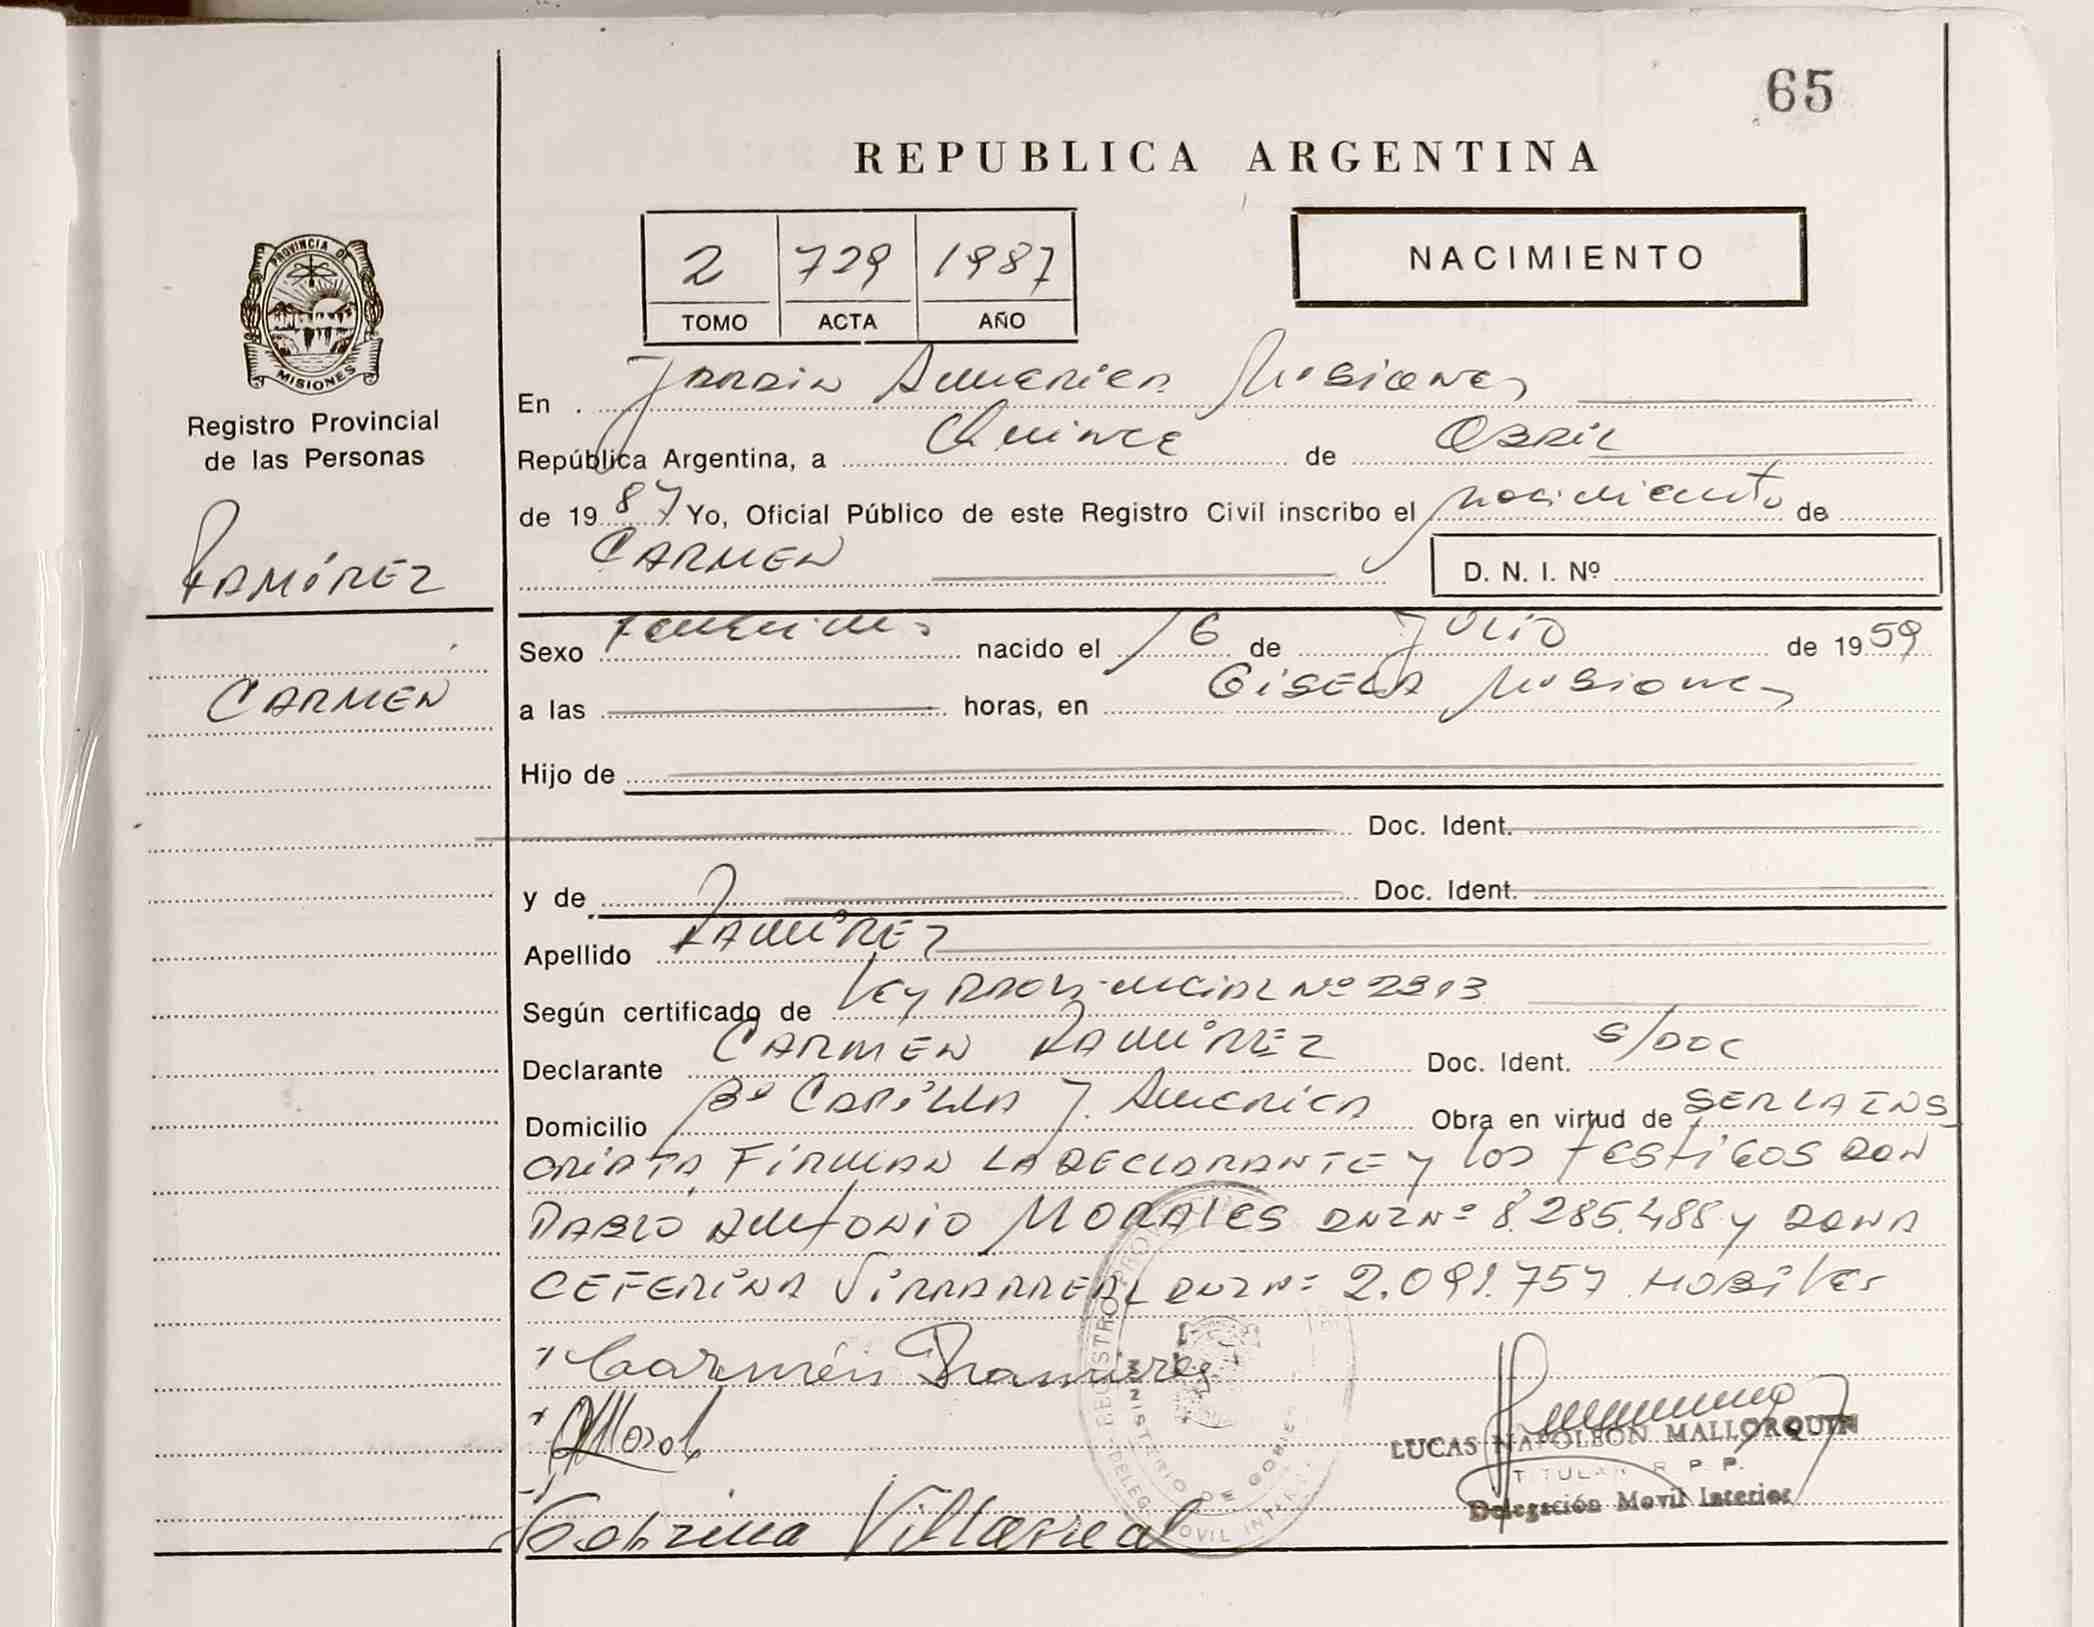 65
REPUBLICA ARGENTINA
2 729 1987
TOMO ACTA AÑO
NACIMIENTO
PROVINCIA DE
MISIONES
Registro Provincial
de las Personas
RAMÍREZ
CARMEN
En Jardin America Misiones
República Argentina, a Quince de Abril
de 1987 Yo, Oficial Público de este Registro Civil inscribo el nacimiento de
CARMEN
D. N. I. Nº
Sexo Femenino nacido el 16 de Julio de 1959
a las horas, en Gisela Misiones
Hijo de
Doc. Ident.
y de Doc. Ident.
Apellido RAMÍREZ
Según certificado de Ley Provincial Nº 2313
Declarante CARMEN RAMÍREZ Doc. Ident. S/DOC
Domicilio Bº J. America Obra en virtud de SER LA INS
CRIPTA, FIRMAN LA DECLARANTE y los testigos DON
PABLO ANTONIO MORALES DNI Nº 8.285.488 y DOÑA
CEFERINA VILLARREAL DNI Nº 2.091.757 HOBILES
Carmén Ramirez
Villarreal
REGISTRO PROV
MINISTERIO DE GOBIE
DELEG MOVIL INTER
LUCAS NAPOLEON MALLORQUIN
TITULAR R. P. P.
Delegación Movil Interior